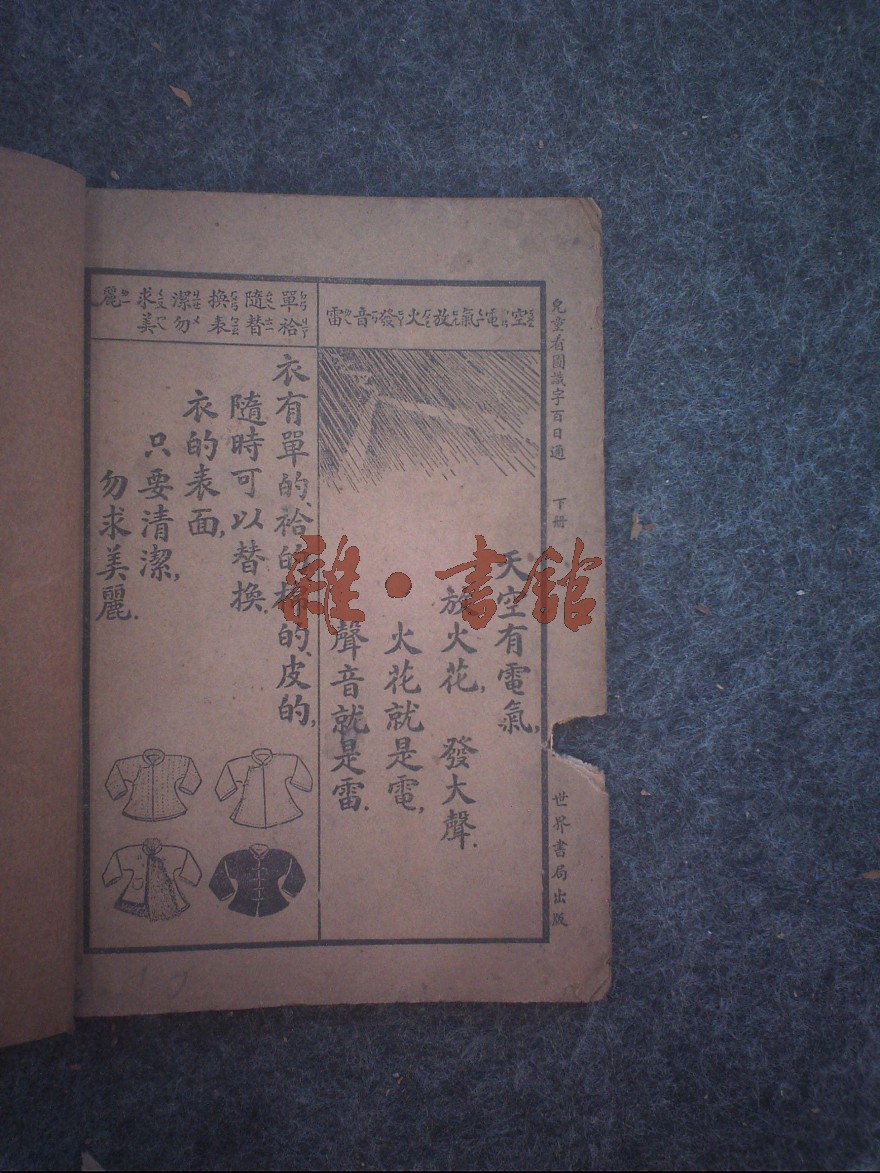 兒童看圖識字百日通 下册
世界書局出版
空電氣放火發音雷
天空有電氣,
放火花,發大聲.
火花就是電,
聲音就是雷.
單袷
隨替
換表
潔勿
求美
麗
衣有單的、袷的、棉的、皮的,
隨時可以替換.
衣的表面,
只要清潔,
勿求美麗.
雜·書館